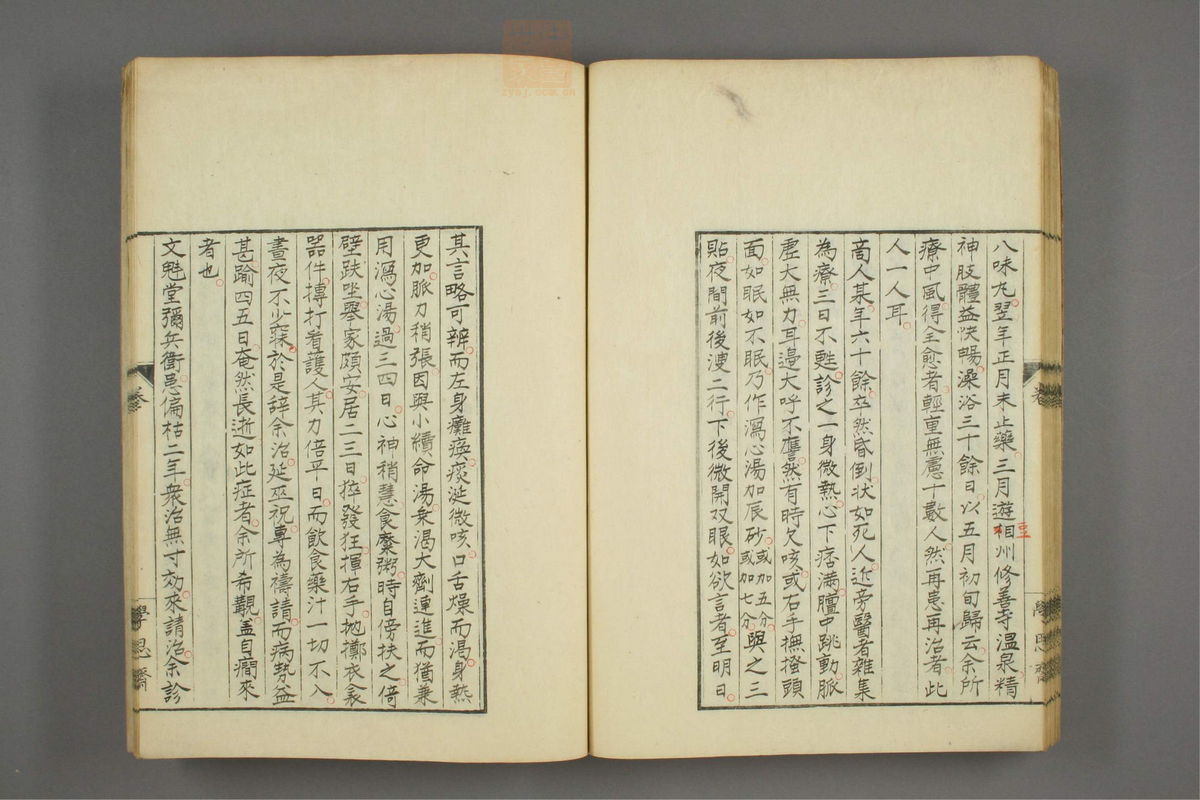 八味丸翌年正月末止藥三月遊相州修善寺溫泉精
豆
神肢體益快暢澡浴三十餘日以五月初旬歸云余所
療中風得全愈者輕重無慮十數人然再患再治者此
人一人耳
商人某年六十餘卒然昏倒狀如死人近旁醫者雜集
為療三日不甦診之一身微熱心下痞滿膻中跳動脈
虛大無力耳邊大呼不應然有時欠咳或右手撫搔頭
面如眠如不眠乃作瀉心湯加辰砂或加五分或加七分與之三
貼夜間前後溲二行下後微開双眼如欲言者至明日
其言略可辨而左身癱瘓痰涎微咳口舌燥而渴身熱
更加脈力稍張因與小續命湯衆渴大劑連進而猶兼
用瀉心湯過三四日心神稍慧食糜粥時自傍扶之倚
壁趺坐舉家頗安居二三日猝發狂揮右手抛擲衣衾
器件摶打看護人其力倍平日而飲食藥汁一切不入
晝夜不少寐於是辞余治延巫祝專為禱請而病勢益
甚踰四五日奄然長逝如此症者余所希覯盖自癇來
者也
文魁堂彌兵衛患偏枯二年衆治無寸効來請治余診
卷
學思齋